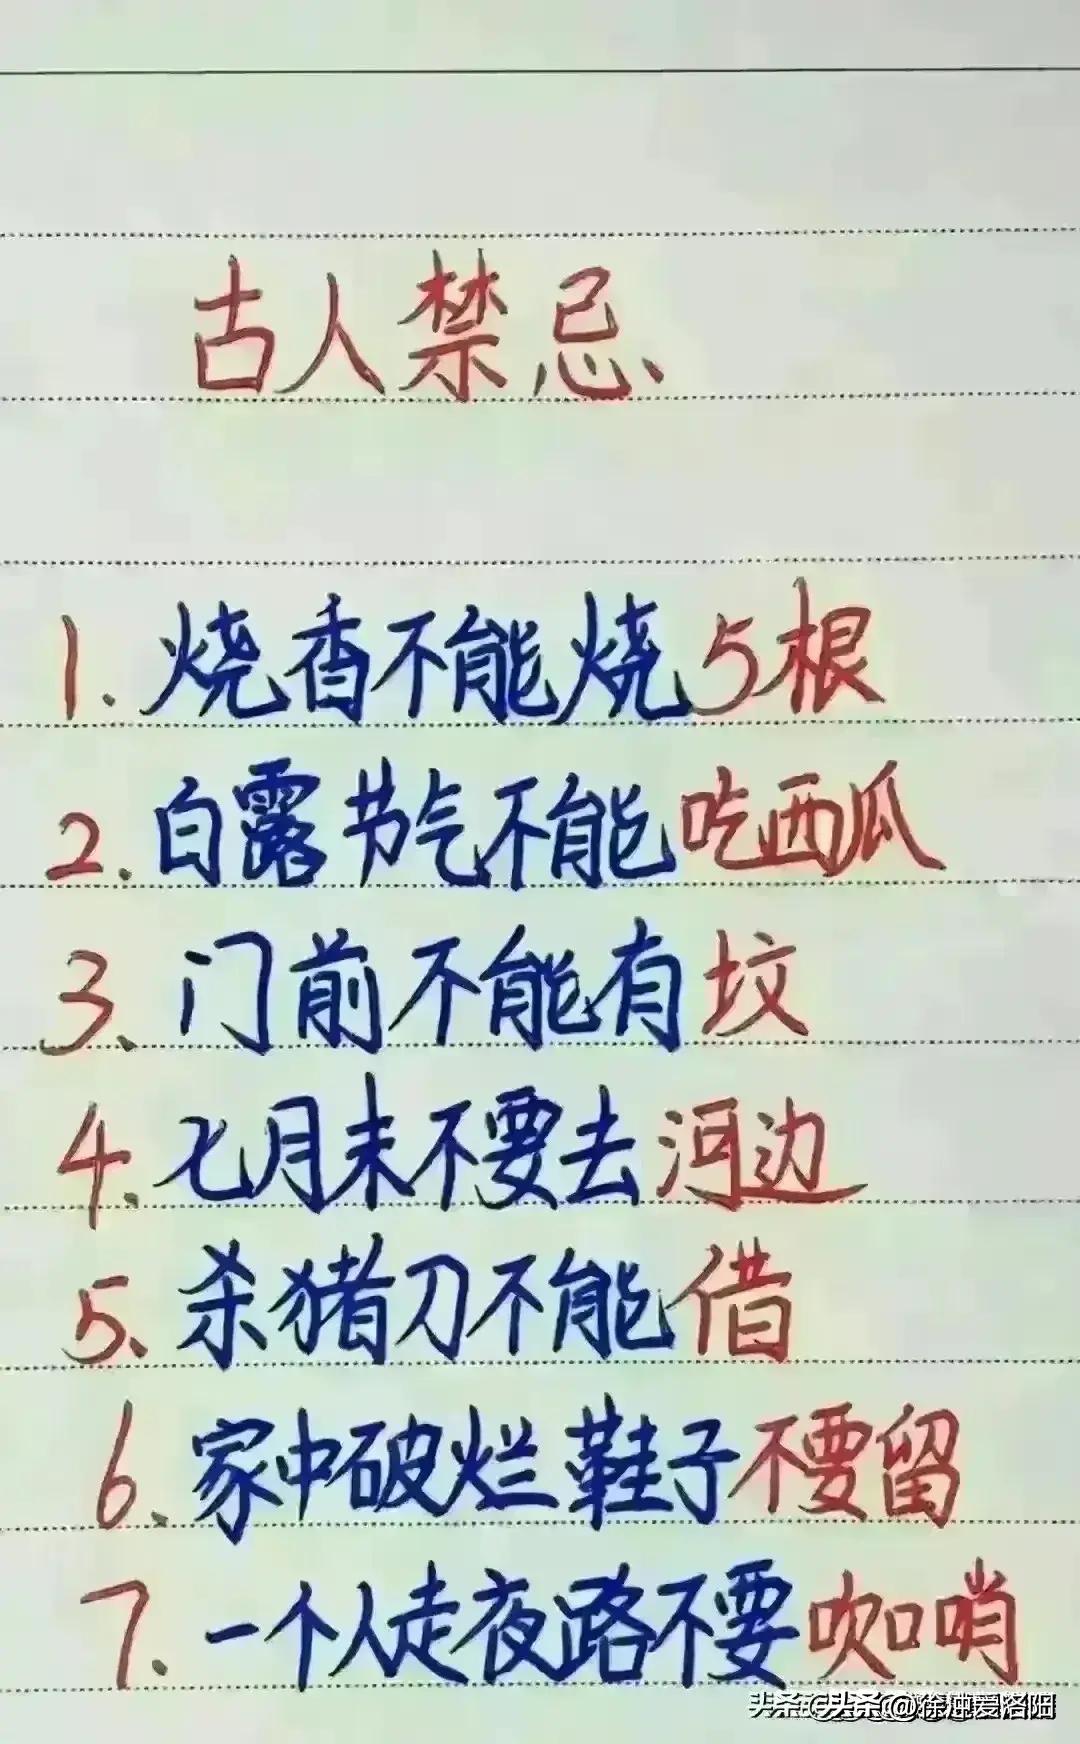 古人禁忌、
1. 烧香不能烧5根
2. 白露节气不能吃西瓜
3、门前不能有坟
4、七月末不要去河边
5、杀猪刀不能借
6、家中破烂鞋子不要留
7、一个人走夜路不要吹口哨
头条@徐灿爱洛阳